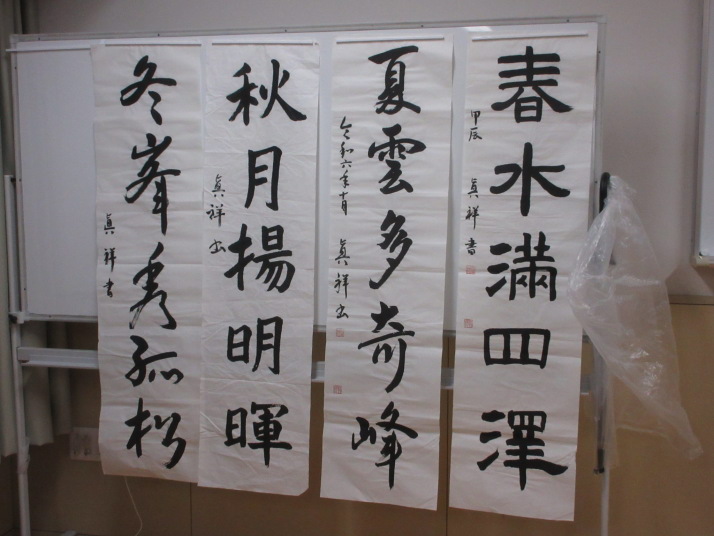 春水滿四澤
甲辰 眞祥書
夏雲多奇峰
令和六年十月 眞祥書
秋月揚明暉
眞祥書
冬峯秀孤松
眞祥書